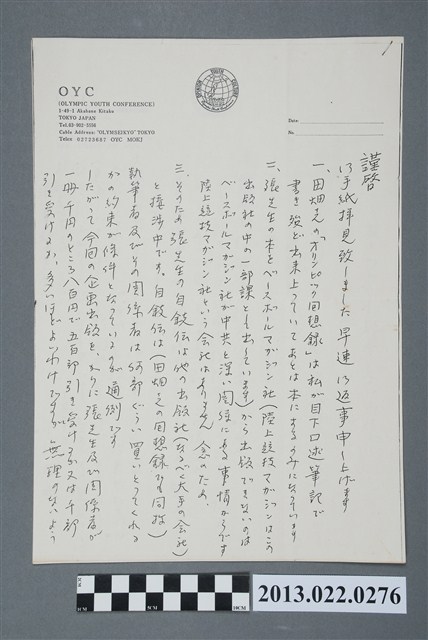 1
OYC
(OLYMPIC YOUTH CONFERENCE)
1-49-1 Akabane Kitaku
TOKYO JAPAN
Tel.03-902-3556
Cable Address: "OLYMSEIKYO" TOKYO
Telex 02723687 OYC MOKJ
Date
No.
謹啓
御手紙拝見致しました 早速御返事申し上げます
一、田畑さんの「オリンピック回想録」は私が目下口述筆記で
書き殆ど出来上っていてあとは本にするのみになっています
二、張先生の本をベースボールマガジン社(陸上競技マガジンはこの
出版社の中の一部課として出しています)から出版できないのは
ベースボールマガジン社が中共と深い関係にある事情からです
陸上競技マガジン社という会社はありません 念のため、
三、そのため張先生の自叙伝は他の出版社(なるべく大手の会社)
と接渉中です、自叙伝は(田畑さんの回想録も同様)
執筆者及びその関係者は何部ぐらい買いとってくれる
かの約束が条件となっているのが通例です
したがって今回の企画出版を、かりに張先生及び関係者が
一冊千円のところ八百円で五百部引き受けるか又は千部
引き受けるか、多いほどよいわけですが 無理のないよう
2013.022.0276